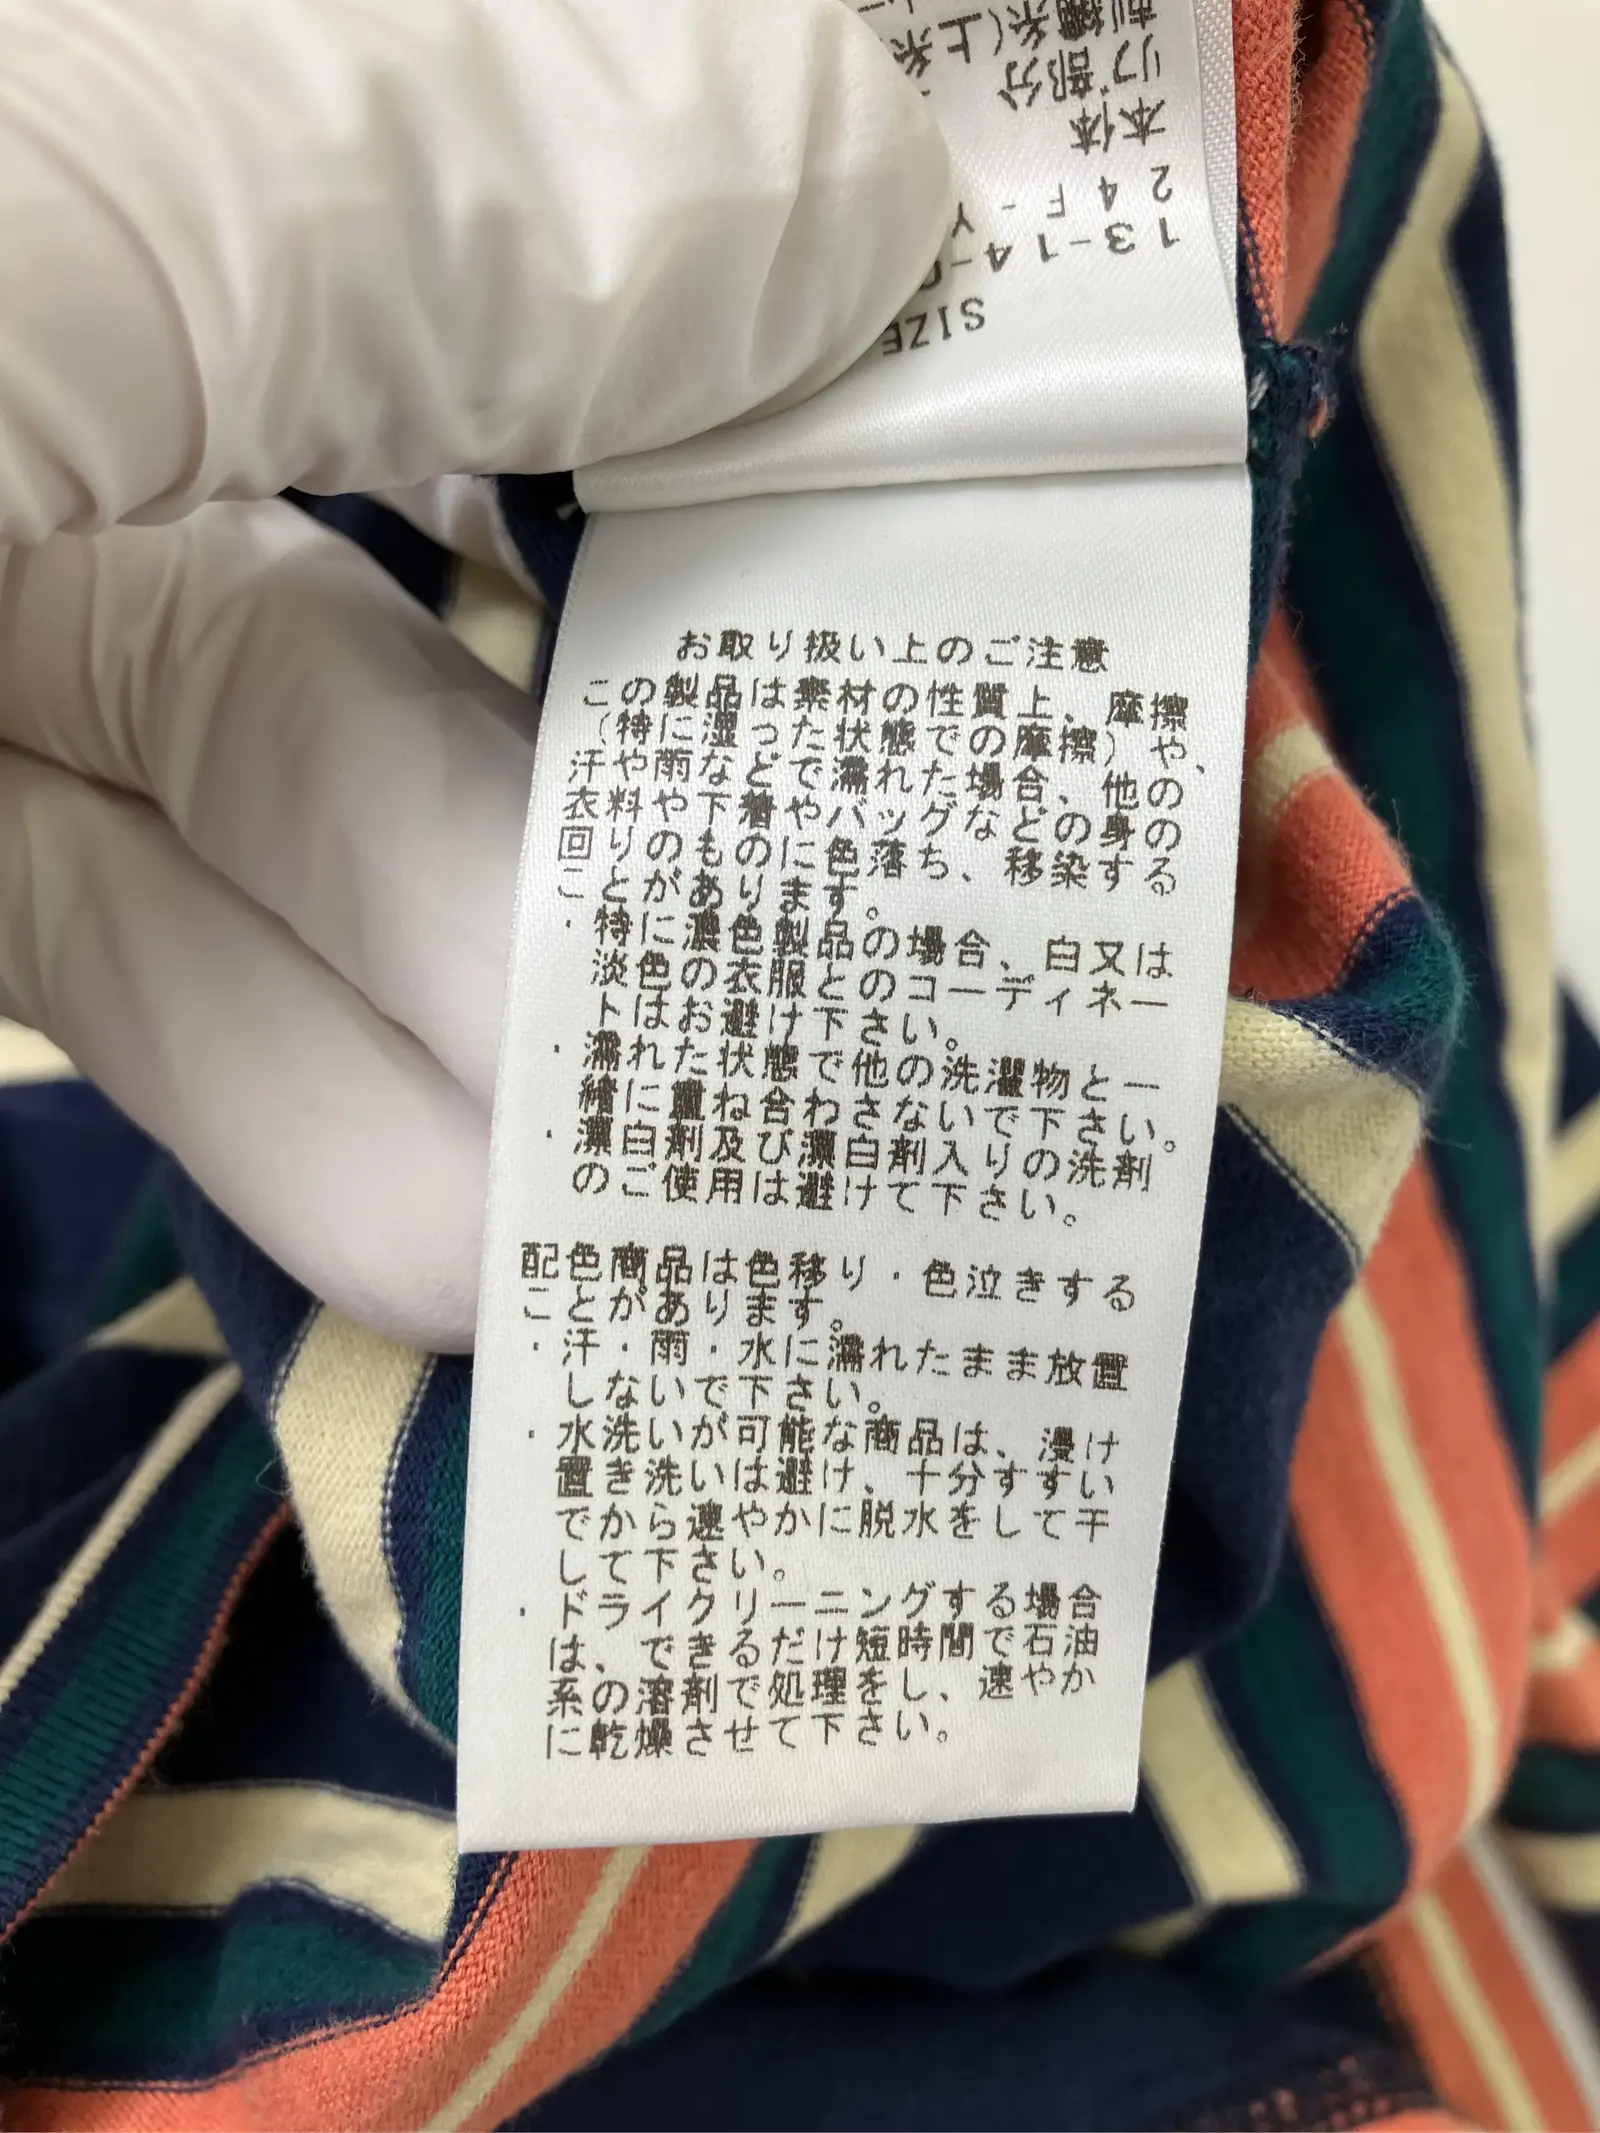 刺繍糸(上糸
リブ部分
本体
24F-Y
13-14-0
SIZE
お取り扱い上のご注意
この製品は素材の性質上、摩擦
(特に湿った状態での摩擦)や、
汗や雨などで濡れた場合、他の
衣料や下着やバッグなどの身の
回りのものに色落ち、移染する
ことがあります。
・特に濃色製品の場合、白又は
淡色の衣服とのコーディネー
トはお避け下さい。
・濡れた状態で他の洗濯物と一
緒に重ね合わさないで下さい。
・漂白剤及び漂白剤入りの洗剤
のご使用は避けて下さい。
配色商品は色移り・色泣きする
ことがあります。
・汗・雨・水に濡れたまま放置
しないで下さい。
・水洗いが可能な商品は、浸け
置き洗いは避け、十分すすい
でから速やかに脱水をして干
して下さい。
・ドライクリーニングする場合
は、できるだけ短時間で石油
系の溶剤で処理をし、速やか
に乾燥させて下さい。